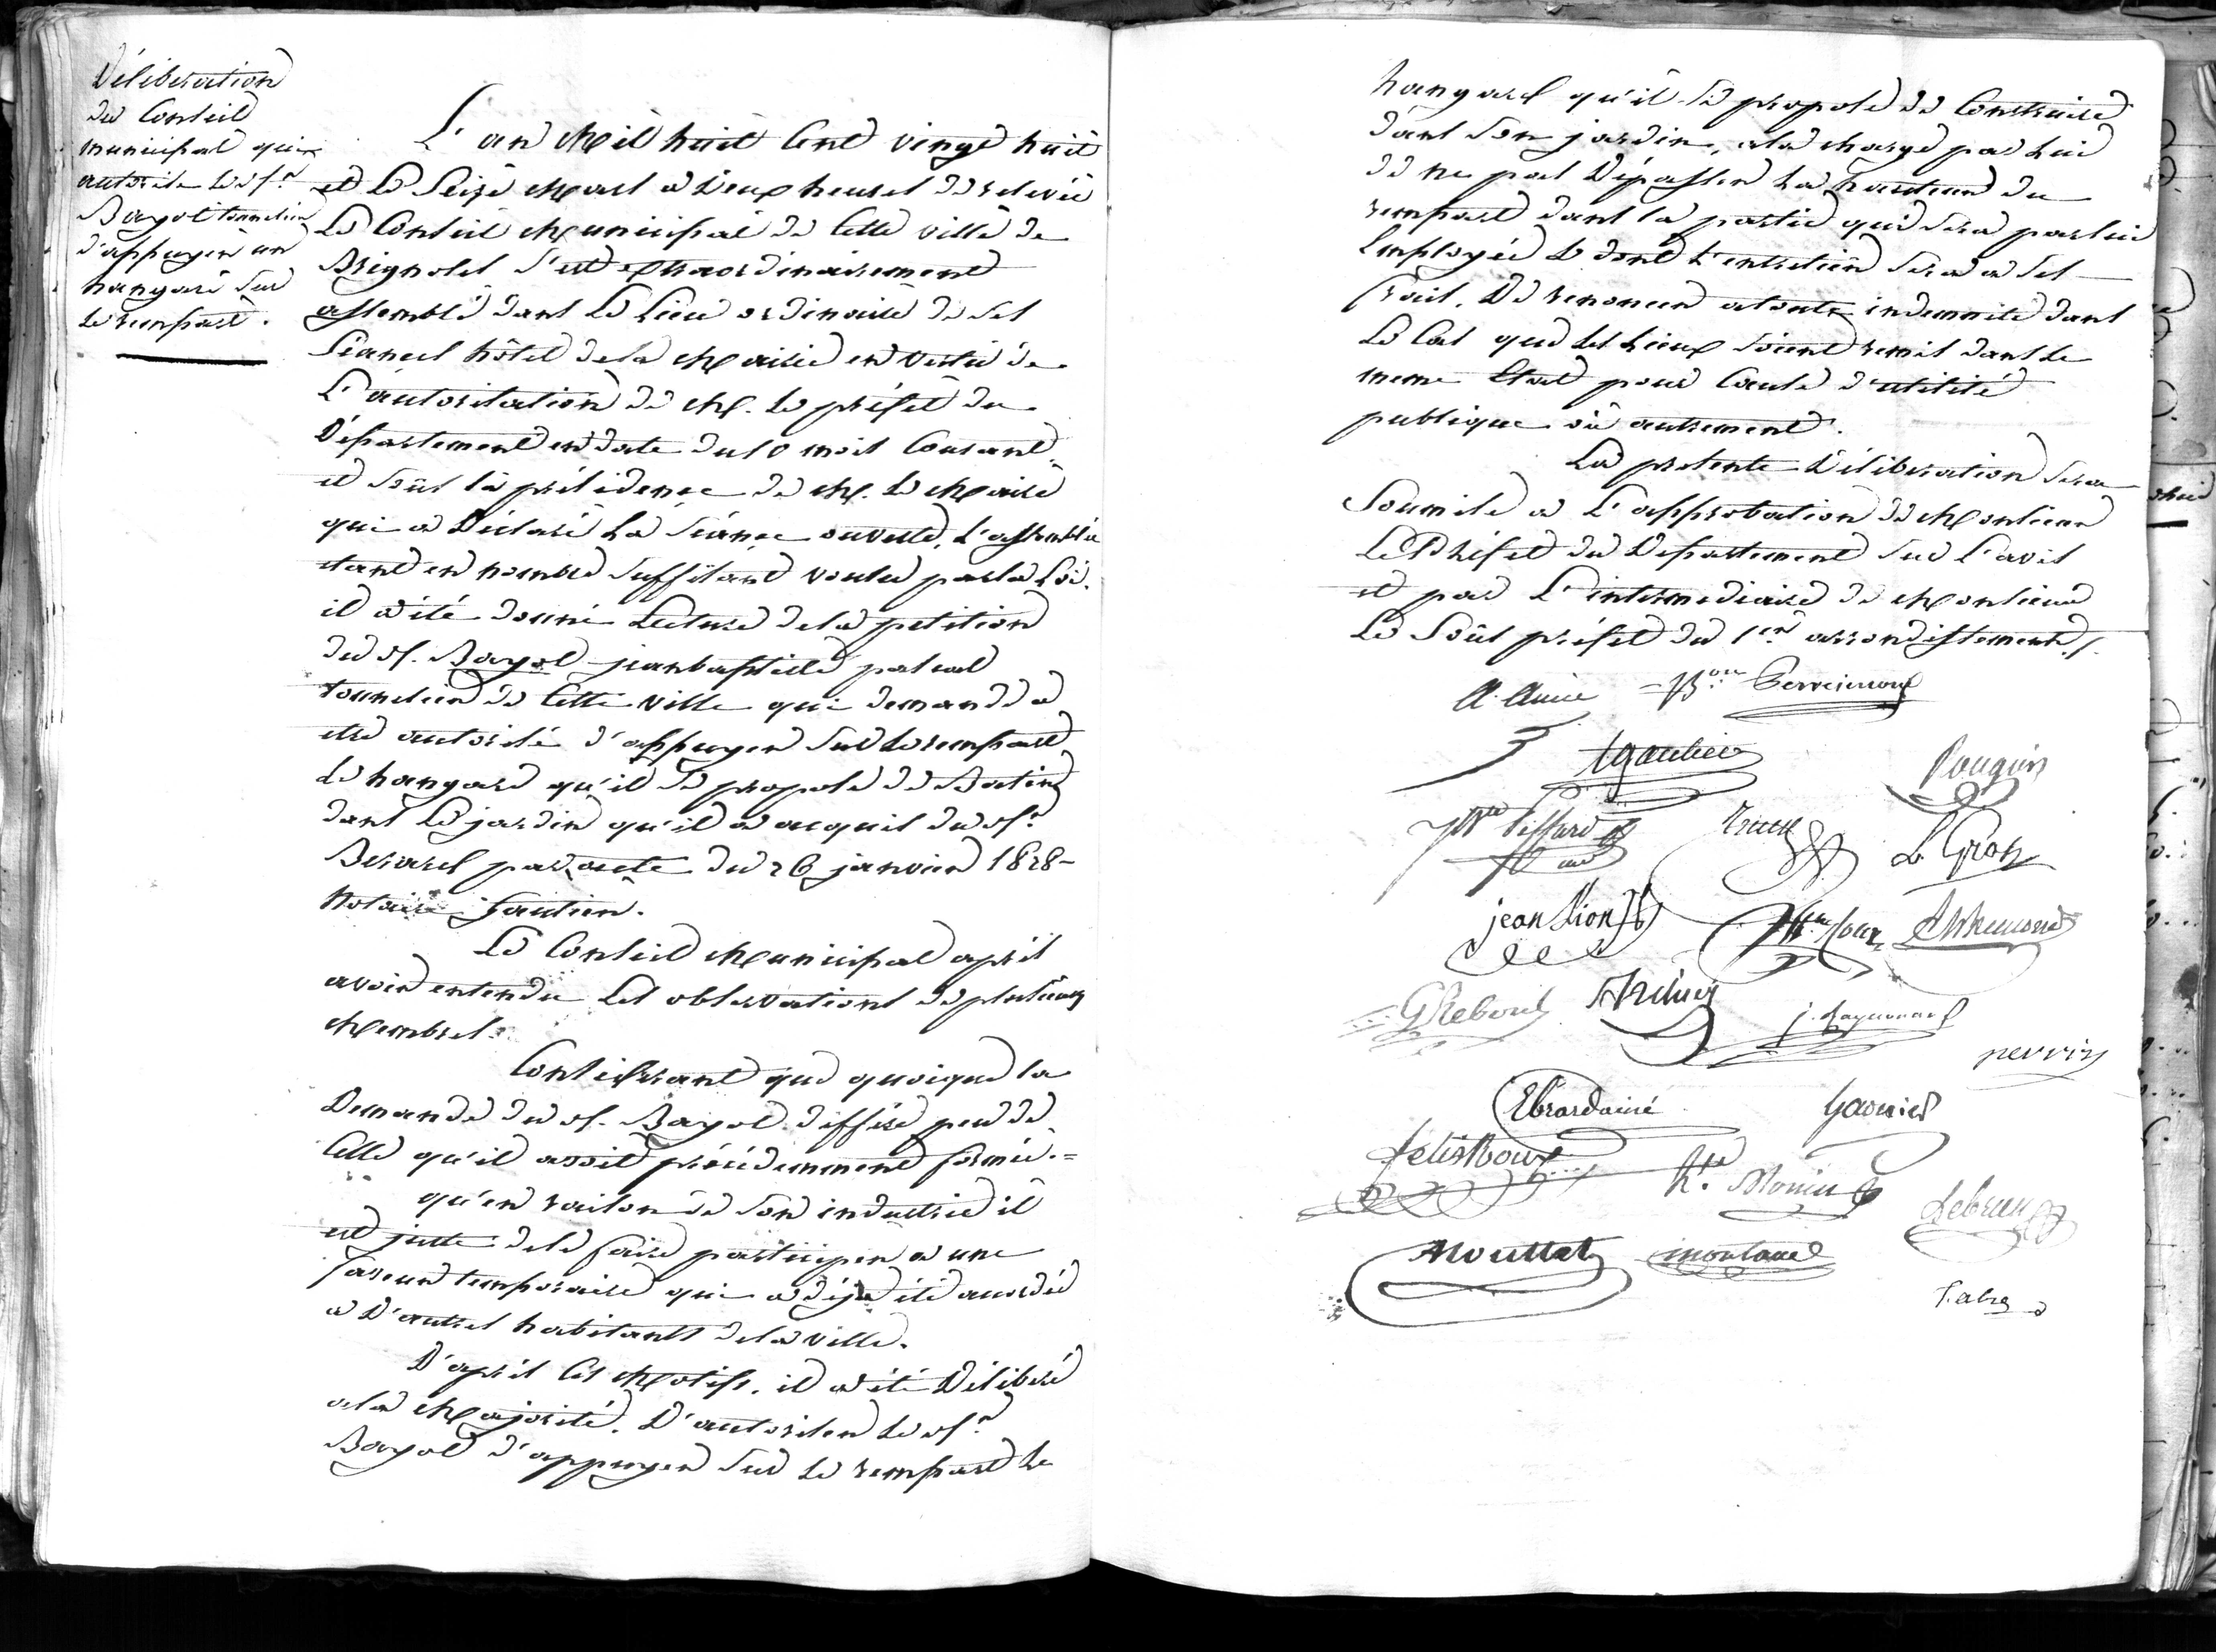 Délibération
du Conseil
municipal qui
autorise le Sr.
Bayol tonnelier
d'appuyer un
hangard sur
le rempart.
L'an Mil huit Cent vingt huit
et le Seize Mars a Deux heures de relevée
Le Conseil Municipal de Cette ville de
Brignoles S'est extraordinairement
assemblé dans Le Lieu ordinaire de ses
Séances hôtel dela Mairie en vertu de
L'autorisation de M. le préfet du
Département en date du 10 mois Courant,
et Sous la présidence de M. le Maire
qui a Déclaré La Séance ouverte, L'assemblée
etant en nombre Suffisant voulu par la Loi.
il a été donné Lecture dela petition
du Sr. Bayol jean baptiste pascal
tonnelier de Cette ville qui demande a
etre autorisé d'appuyer Sur le rempart
le hangard qu'il se propose de Batir
dans Le jardin qu'il a acquis du Sr.
Berard par acte du 26 janvier 1828
Notaire Gautier.
Le Conseil Municipal après
avoir entendu Les observations de plusieurs
Membres.
Considerant que quoique la
Demande du Sr. Bayol differe peu de
Celle qu'il avoit précédemment formée.
qu'en raison de Son industrie il
est juste dele faire participer a une
faveur temporaire qui a déja été accordée
a D'autres habitants dela ville.
D'après Ces Motifs, il a été Délibéré
ala Majorité, D'autoriser le Sr.
Bayol d'appuyer Sur le rempart le
hangard qu'il se propose de Construire
dans Son jardin, ala charge par Lui
de ne pas Dépasser La hauteur du
rempart dans la partie qui Sera par lui
Employée & dont L'entretien Sera a Ses
frais, De renoncer atoute indemnité dans
Le Cas que les Lieux Soient remis dans le
meme Etat pour Cause d'utilité
publique où autrement.
La presente Délibération Sera
Soumise a L'approbation de Monsieur
Le Préfet du Departement Sur L'avis
et par L'intermediaire de Monsieur
Le Sous préfet du 1er arrondissement./.
A. Amic
Gaubier
Pougin
Piffard
Truck
L. Gros
jean Lion
Roux
G Reboul
j. Raynouard
perrin
Ebrard ainé
Garnier
felix Roux
hte. Monier
Lebrun
Mouttet
Fabre